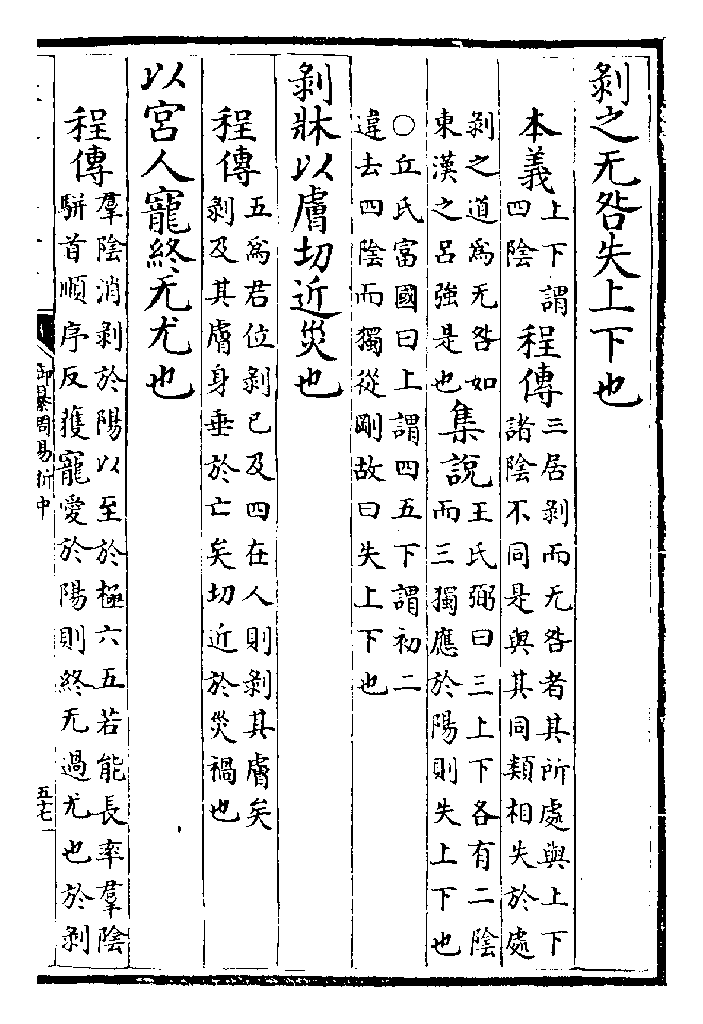 剝之无咎失上下也
本義上下謂四陰程傳三居剝而无咎者其所處與上下
諸陰不同是與其同類相失於處
剝之道爲无咎如東漢之呂強是也集說王氏弼曰三上下各有二陰
而三獨應於陽則失上下也
○丘氏富國曰上謂四五下謂初二
違去四陰而獨從剛故曰失上下也
剝牀以膚切近災也
程傳五爲君位剝已及四在人則剝其膚矣
剝及其膚身垂於亡矣切近於災禍也
以宮人寵終无尤也
程傳羣陰消剝於陽以至於極六五若能長率羣陰
駢首順序反獲寵愛於陽則終无過尤也於剝
御纂周易折中